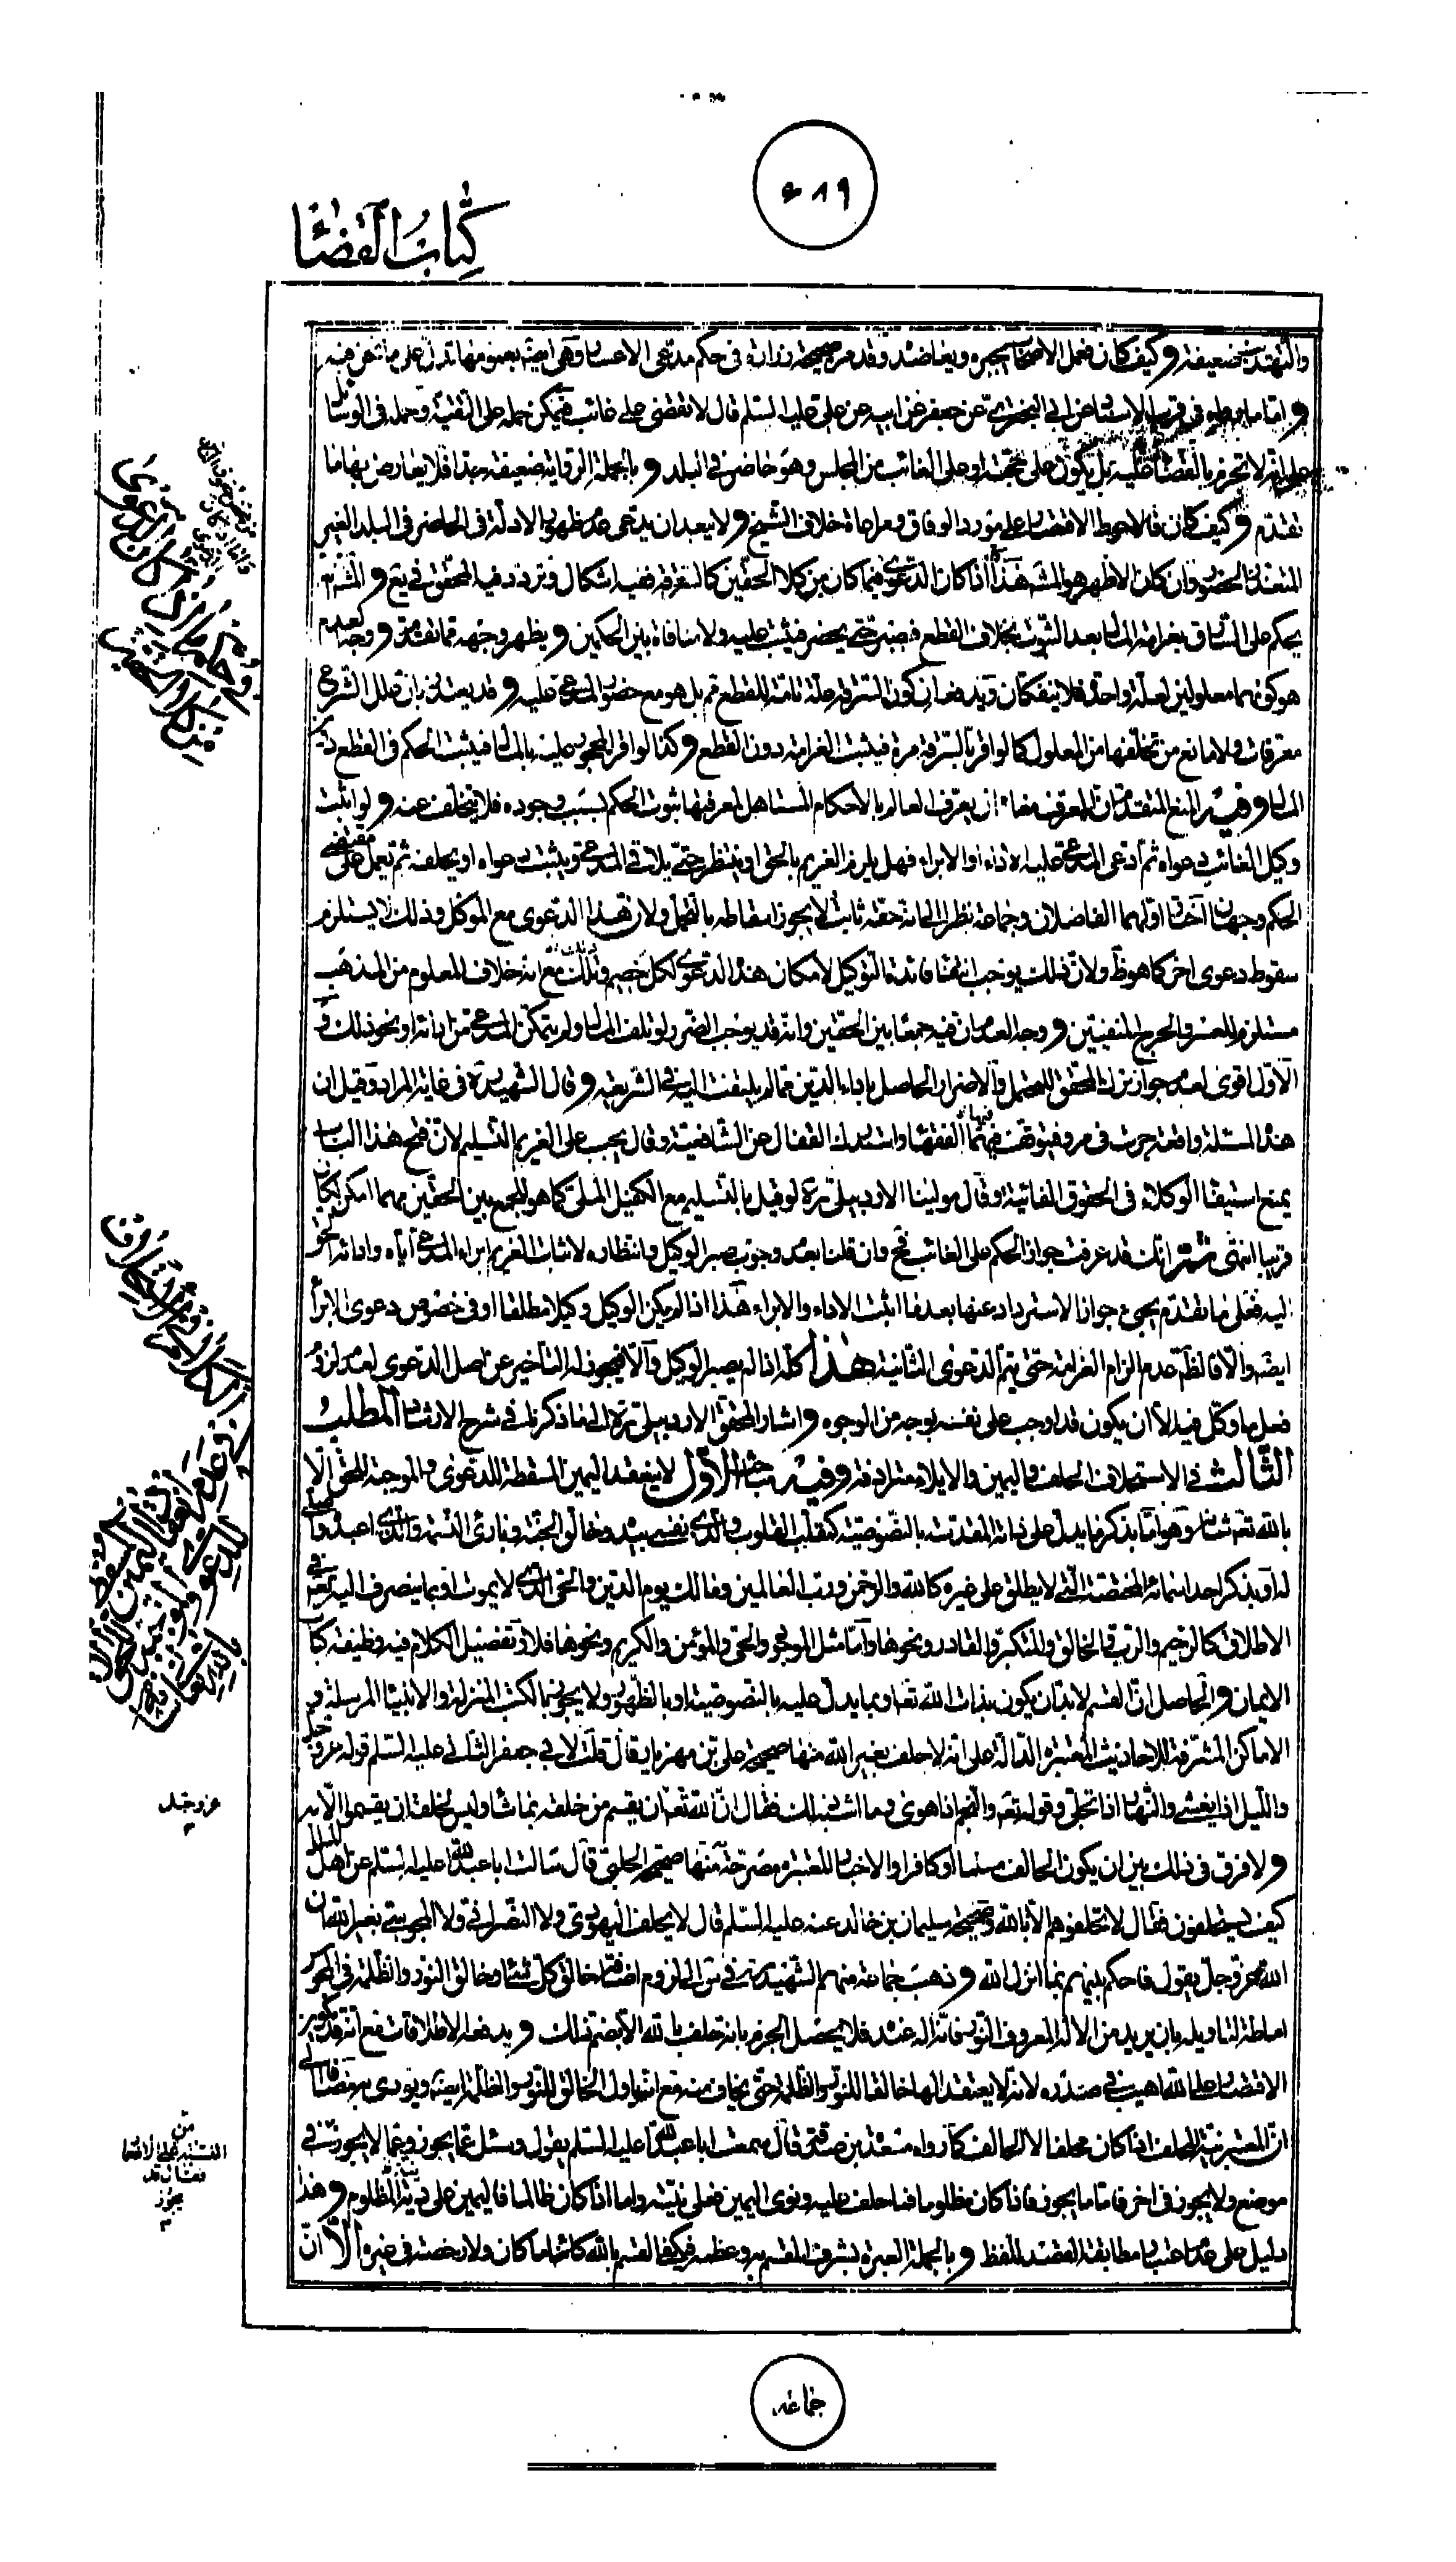 كتاب القضاء
والتهذيب ضعيفة وكيف كان فعمل الاصحاب يجبره ويعاضده وقد مر صحيحة زرارة في حكم مدعي الاعسار وهي ايضا بعمومها تدل على ما نحن فيه
واما ما رواه في قرب الاسناد عن ابي البختري عن جعفر عن ابيه عن علي عليه السلم قال لا يقضى على غائب فيمكن حمله على التقية وحمله في الوسائل
على انه لا تجزم بالقضاء عليه بل يكون على حجته او على الغائب من المجلس وهو حاضر في البلد وبالجملة الرواية ضعيفة جدا فلا يعارض بها ما
تقدم وكيف كان فالاحوط الاقتصار على مورد الوفاق ومراعاة خلاف الشيخ ولا يبعد ان يدعى عدم ظهور الادلة في الحاضر في البلد الغير
المتعذر الحضور وان كان الاظهر هو المشهور هذا اذا كان الدعوى فيما كان من كلا الحقين كالسرقة ففيه اشكال وتردد فيه المحقق في يع والمشهور انه
يحكم على السارق بغرامة المال بعد الثبوت بخلاف القطع فيصبر حتى يحضر فيثبت عليه ولا منافاة بين الحكمين ويظهر وجهه مما تقدم ووجه العدم
هو كونهما معلولين لعلة واحدة فلا ينفكان ويدفعه ان كون السرقة علة تامة للقطع مم بل هو مع حضور المدعى عليه وقد يعتذر بان علل الشرع
معرفات ولا مانع من تخلفها من المعلول كما لو اقر بالسرقة مرة فيثبت الغرامة دون القطع وكذا لو اقر المحجور عليه بالمال فيثبت الحكم في القطع دون
المال وفيه المنع المتقدم فان المعرف معناه ان يعرف العالم بالاحكام المستاهل لمعرفتها ثبوت الحكم بسبب وجوده فلا يتخلف عنه ولو اثبت
وكيل الغائب دعواه ثم ادعى المدعى عليه الاداء او الابراء فهل يلزم الغريم بالحق او ينتظر حتى يلاقي المدعي ويثبت دعواه او يحلفه ثم تعمل على مقتضى
الحكم وجهان اختار اولهما الفاضلان وجماعة نظرا الى انه حقه ثابت لا يجوز اسقاطه بالمحتمل ولان هذا الدعوى مع الموكل وذلك لا يستلزم
سقوط دعوى اخر كما هو ظ ولان ذلك يوجب انتفاء فائدة التوكيل لامكان هذه الدعوى لكل خصم وذلك مع انه خلاف المعلوم من المذهب
مستلزم للعسر والحرج المنفيتين ووجه العدم ان فيه جمعا بين الحقين وانه قد يوجب الضرر لو تلف المال ولم يتمكن المدعي من اثباته او نحو ذلك و
الاول اقوى لعدم جواز ترك المحقق للمحتمل والاضرار الحاصل باداء الدين مما لم يلتفت اليه في الشريعة وقال الشهيد ره في غاية المراد وقيل ان
هذه المسئلة واقعة جرت في مرو فتوقف فيها الفقهاء واستدرك القفال من الشافعية وقال يجب على الغريم التسليم لان فتح هذا الباب
يمنع استيفاء الوكلاء في الحقوق الغائبة وقال مولينا الاردبيلي ره لو قيل بالتسليم مع الكفيل الملي كما هو للجمع بين الحقين مهما امكن لكان
قريبا انتهى ثم انك قد عرفت جواز الحكم على الغائب فح وان قلنا بعدم وجوب صبر الوكيل وانتظاره لاثبات الغريم ابراء المدعي اياه وادائه الحق
اليه فعلى ما تقدم يجئ جواز الاسترداد عنها بعد ما اثبت الاداء والابراء هذا اذا لم يكن الوكيل وكيلا مطلقا او في خصوص دعوى الابراء
ايضا والا فالظ عدم الزام الغرامة حتى يتم الدعوى الثانية هذا كله اذا لم يصبر الوكيل والا فيجوز له التأخير عن اصل الدعوى لعدم لزوم
فعل ما وكل فيه الا ان يكون قد اوجب على نفسه بوجه من الوجوه واشار المحقق الاردبيلي ره الى ما ذكرنا في شرح الارشاد المطلب
الثالث في الاستحلاف الحلف واليمين والايلاء مترادفة وفيه مباحث الاول لا ينعقد اليمين المسقطة للدعوى والموجبة للحق الا
بالله تعه شانه وهو اما بذكر ما يدل على ذاته المقدسة بالخصوصية كمقلب القلوب والذي نفسي بيده وخالق الجنة وبارئ النسمة والذي اعبده واصلي
له او بذكر احد اسمائه المختصة التي لا يطلق على غيره كالله والرحمن ورب العالمين ومالك يوم الدين والحي الذي لا يموت او بما ينصرف اليه تعه في
الاطلاق كالرحيم والرب والخالق والمتكبر والقادر ونحوها واما مثل الموجود والحي والمؤمن والكريم ونحوها فلا وتفصيل الكلام فيه وظيفة كتاب
الايمان والحاصل ان القسم لا بد ان يكون بذات الله تعه او بما يدل عليه بالخصوصية او بالظهور ولا يجوز بما الكتب المنزلة والانبياء المرسلة و
الاماكن المشرفة للاحاديث المعتبرة الدالة على انه لا حلف بغير الله منها صحيحة علي بن مهزيار قال قلت لابي جعفر الثاني عليه السلم قوله عز وجل
والليل اذا يغشى والنهار اذا تجلى وقوله تعه والنجم اذا هوى وما اشبه ذلك فقال ان الله تعه ان يقسم من خلقه بما شاء وليس لخلقه ان يقسموا الا به
ولا فرق في ذلك بين ان يكون الحالف مسلما او كافرا والاخبار المعتبرة مصرحة منها صحيحة الحلبي قال سألت ابا عبد الله عليه السلم عن اهل الملل
كيف يستحلفون فقال لا تحلفوهم الا بالله وصحيحة سليمان بن خالد عنه عليه السلم قال لا يحلف اليهودي ولا النصراني ولا المجوسي بغير الله ان
الله عز وجل يقول فاحكم بينهم بما انزل الله وذهب جماعة منهم الشهيد ره في س الى لزوم اضافة خالق كل شئ او خالق النور والظلمة في المجوس
اماطة لتاويله بان يريد من الاله المعروف النور فانه اله عنده فلا يحصل الجزم بانه حلف بالله الا بضم ذلك ويدفعه الاطلاقات مع انه قد يكون
الاقتصار على الله اهيب في صدره لانه لا يعتقد الها خالقا للنور والظلمة حتى يخاف منه مع انه ياول الخالق للنور والظلمة ايضا ويوري بهم مضافا الى
ان المعتبر نية المحلف اذا كان محقا لا الحالف كما رواه مسعدة بن صدقة قال سمعت ابا عبد الله عليه السلم يقول وسئل عما يجوز وعما لا يجوز من في
موضع ولا يجوز في اخر فاما ما يجوز فاذا كان مظلوما فما حلف عليه ونوى اليمين فعلى نيته واما اذا كان ظالما فاليمين على نية المظلوم وهذا
دليل على عدم اعتبار مطابقة القصد للفظ وبالجملة العبرة بشرف المقسم به وعظمه فيكفي القسم بالله كائنا ما كان ولا رخصة في غيره الا ان
عز وجل
جماعة